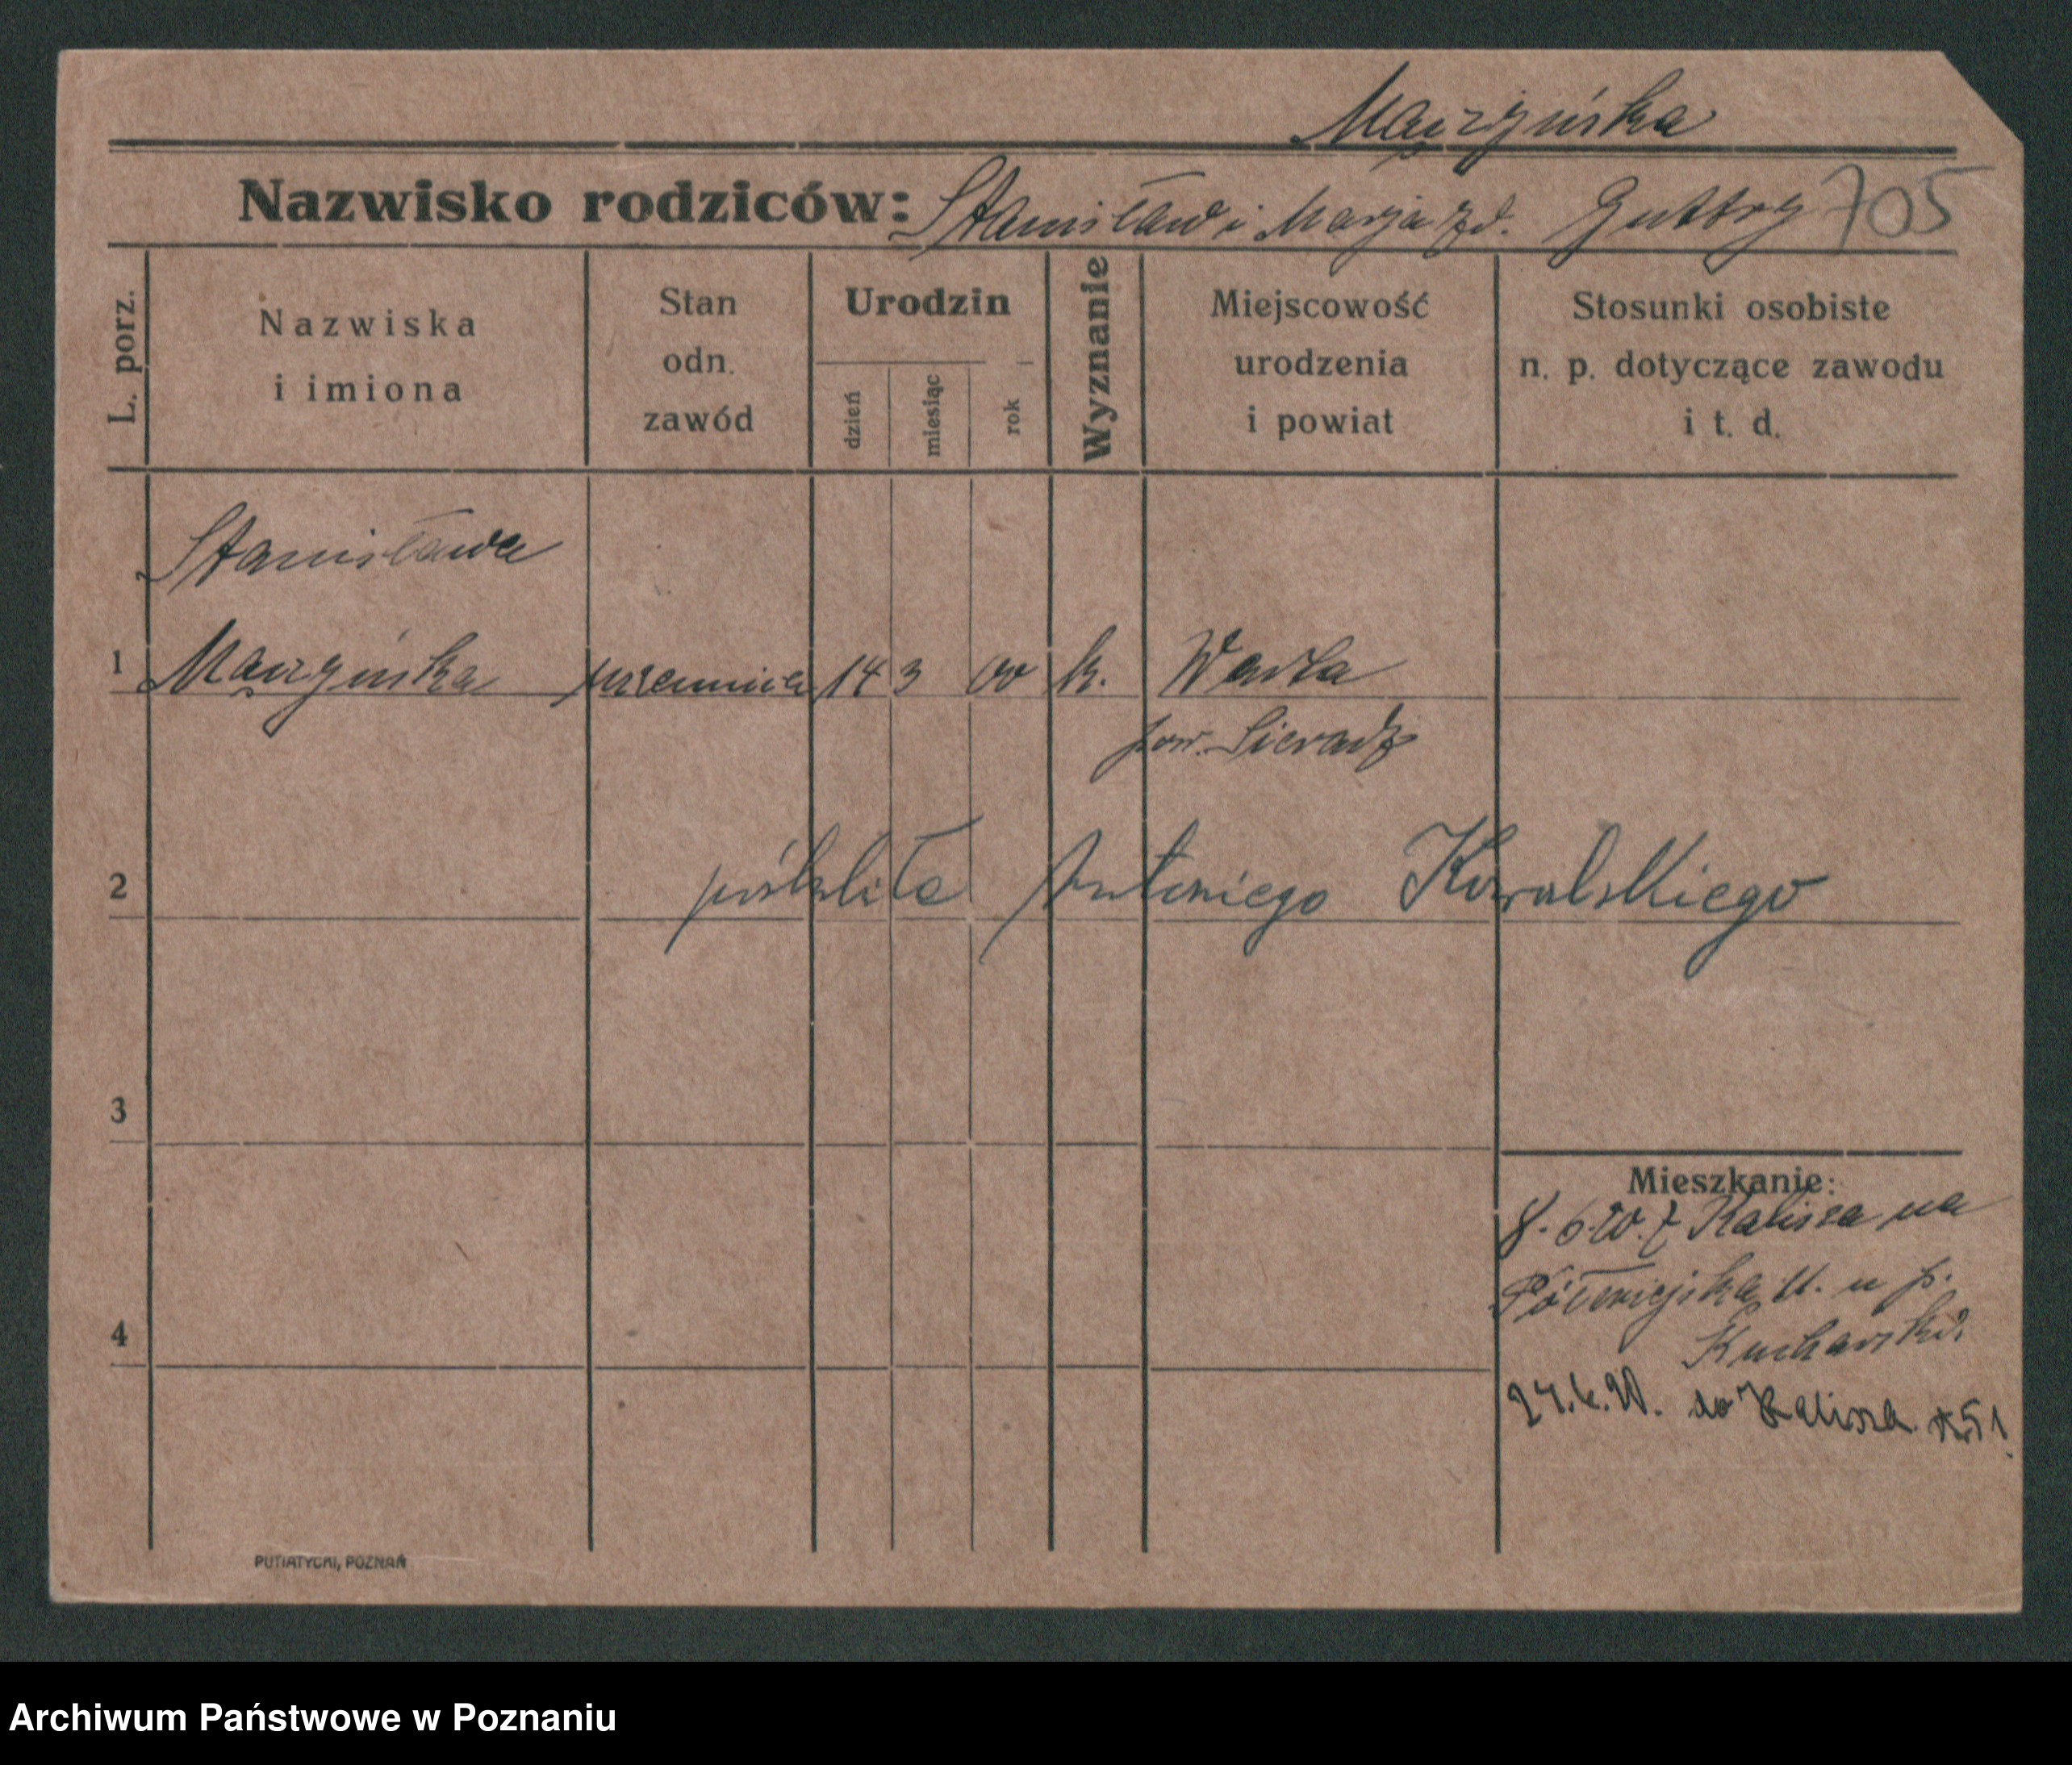 Marzyńska
Nazwisko rodziców: Stanisław i Marja zd. Guttry 705
L. porz.
Nazwiska
i imiona
Stan
odn.
zawód
Urodzin
dzień
miesiąc
rok
Wyznanie
Miejscowość
urodzenia
i powiat
Stosunki osobiste
n. p. dotyczące zawodu
i t. d.
Stanisława
1 Marzyńska uczennica 14 3 00 k. Warta
pow. Sieradz
2 Antoniego Kowalskiego
3
Mieszkanie:
8.6.20. z Kalisza na
Półwiejską 11. u p.
4 Kucharski.
24.6.20. do Kalisza
PUTIATYCKI, POZNAŃ
Archiwum Państwowe w Poznaniu